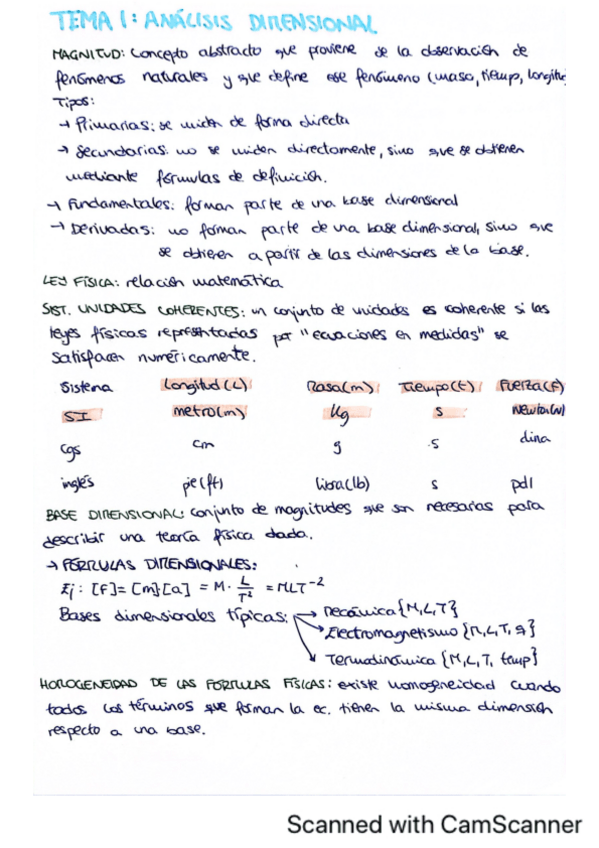 TEMA 1: ANÁLISIS DIMENSIONAL
MAGNITUD: Concepto abstracto que proviene de la observación de
fenómenos naturales y que define ese fenómeno (masa, tiempo, longitu
Tipos:
→ Primarias: se miden de forma directa
→ Secundarias: no se miden directamente, sino que se obtienen
mediante fórmulas de definición.
→ Fundamentales: forman parte de una base dimensional
→ Derivadas: no forman parte de una base dimensional, sino que
se obtienen a partir de las dimensiones de la base.
LEY FÍSICA: relación matemática
SIST. UNIDADES COHERENTES: un conjunto de unidades es coherente si las
leyes físicas representadas por "ecuaciones en medidas" se
satisfacen numéricamente.
Sistema Longitud (L) Masa (m) Tiempo (t) Fuerza (F)
SI metro (m) Kg s Newton (N)
cgs cm g s dina
inglés pie (ft) libra (lb) s pdl
BASE DIMENSIONAL: conjunto de magnitudes que son necesarias para
describir una teoría física dada.
→ FÓRMULAS DIMENSIONALES:
Ej: [F] = [m][a] = M · L/T² = MLT⁻²
Bases dimensionales típicas: → Mecánica {M, L, T}
→ Electromagnetismo {M, L, T, q}
→ Termodinámica {M, L, T, temp}
HOMOGENEIDAD DE LAS FÓRMULAS FÍSICAS: existe homogeneidad cuando
todos los términos que forman la ec. tienen la misma dimensión
respecto a una base.
Scanned with CamScanner